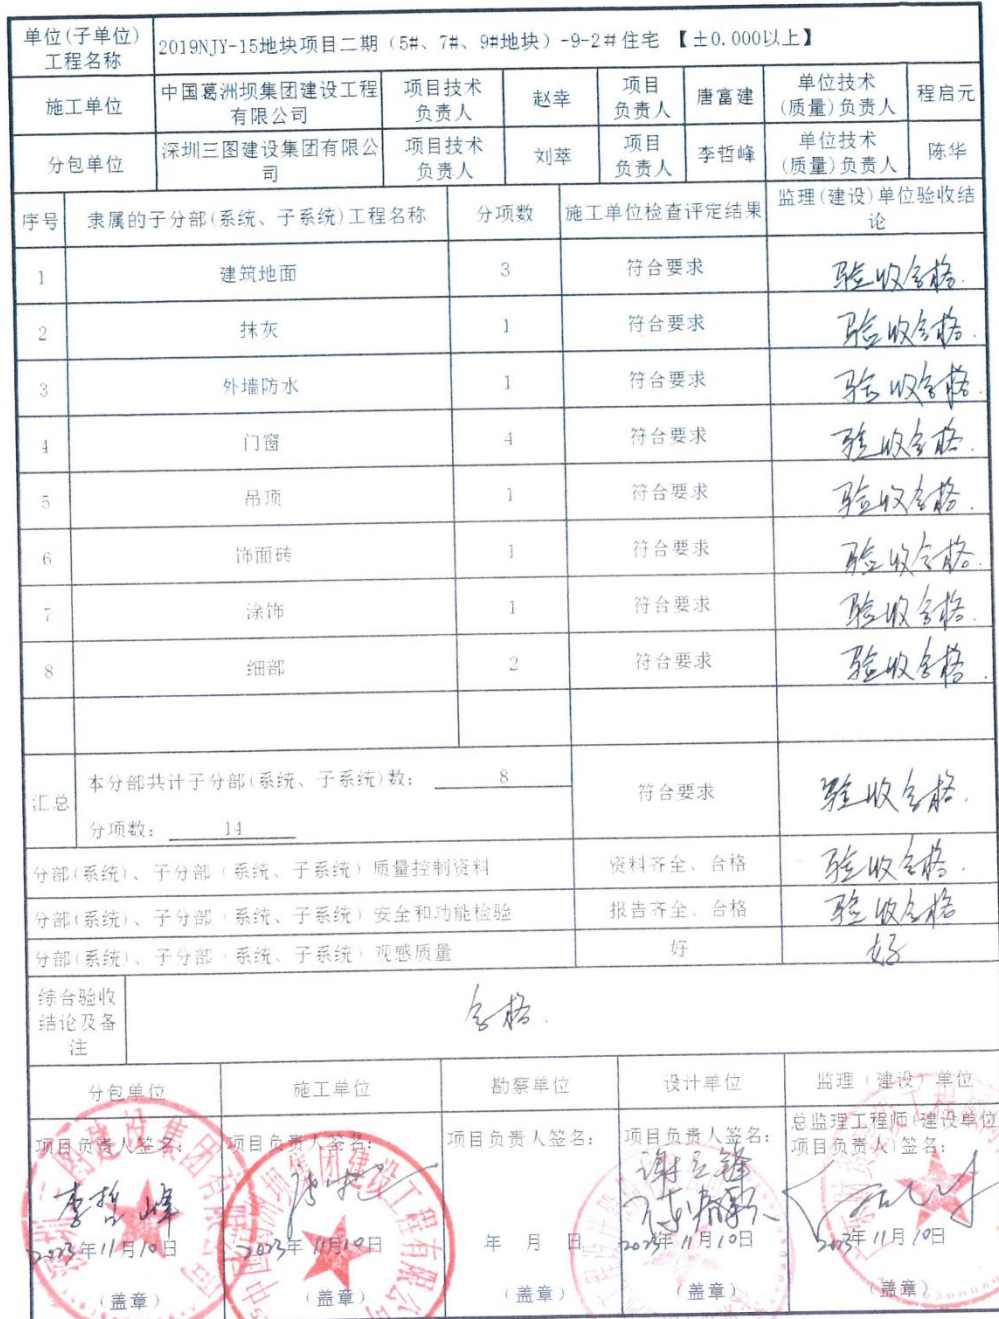 单位(子单位)
工程名称
2019NJY-15地块项目二期（5#、7#、9#地块）-9-2#住宅 【±0.000以上】
施工单位
中国葛洲坝集团建设工程
有限公司
项目技术
负责人
赵幸
项目
负责人
唐富建
单位技术
(质量)负责人
程启元
分包单位
深圳三图建设集团有限公
司
项目技术
负责人
刘萃
项目
负责人
李哲峰
单位技术
(质量)负责人
陈华
序号 隶属的子分部(系统、子系统)工程名称 分项数 施工单位检查评定结果
监理(建设)单位验收结
论
1 建筑地面 3 符合要求 验收合格.
2 抹灰 1 符合要求 验收合格.
3 外墙防水 1 符合要求 验收合格.
4 门窗 4 符合要求 验收合格.
5 吊顶 1 符合要求 验收合格.
6 饰面砖 1 符合要求 验收合格.
7 涂饰 1 符合要求 验收合格.
8 细部 2 符合要求 验收合格.
汇总
本分部共计子分部(系统、子系统)数： 8
分项数： 14
符合要求 验收合格.
分部(系统)、子分部（系统、子系统）质量控制资料 资料齐全、合格 验收合格.
分部(系统)、子分部（系统、子系统）安全和功能检验 报告齐全、合格 验收合格
分部(系统)、子分部（系统、子系统）观感质量 好 好
综合验收
结论及备
注
合格.
分包单位 施工单位 勘察单位 设计单位 监理（建设）单位
项目负责人签名：
李哲峰
2023年11月10日
（盖章）
项目负责人签名：
2023年11月10日
（盖章）
项目负责人签名：
年 月 日
（盖章）
项目负责人签名：
2023年11月10日
（盖章）
总监理工程师(建设单位
项目负责人)签名：
2023年11月10日
（盖章）